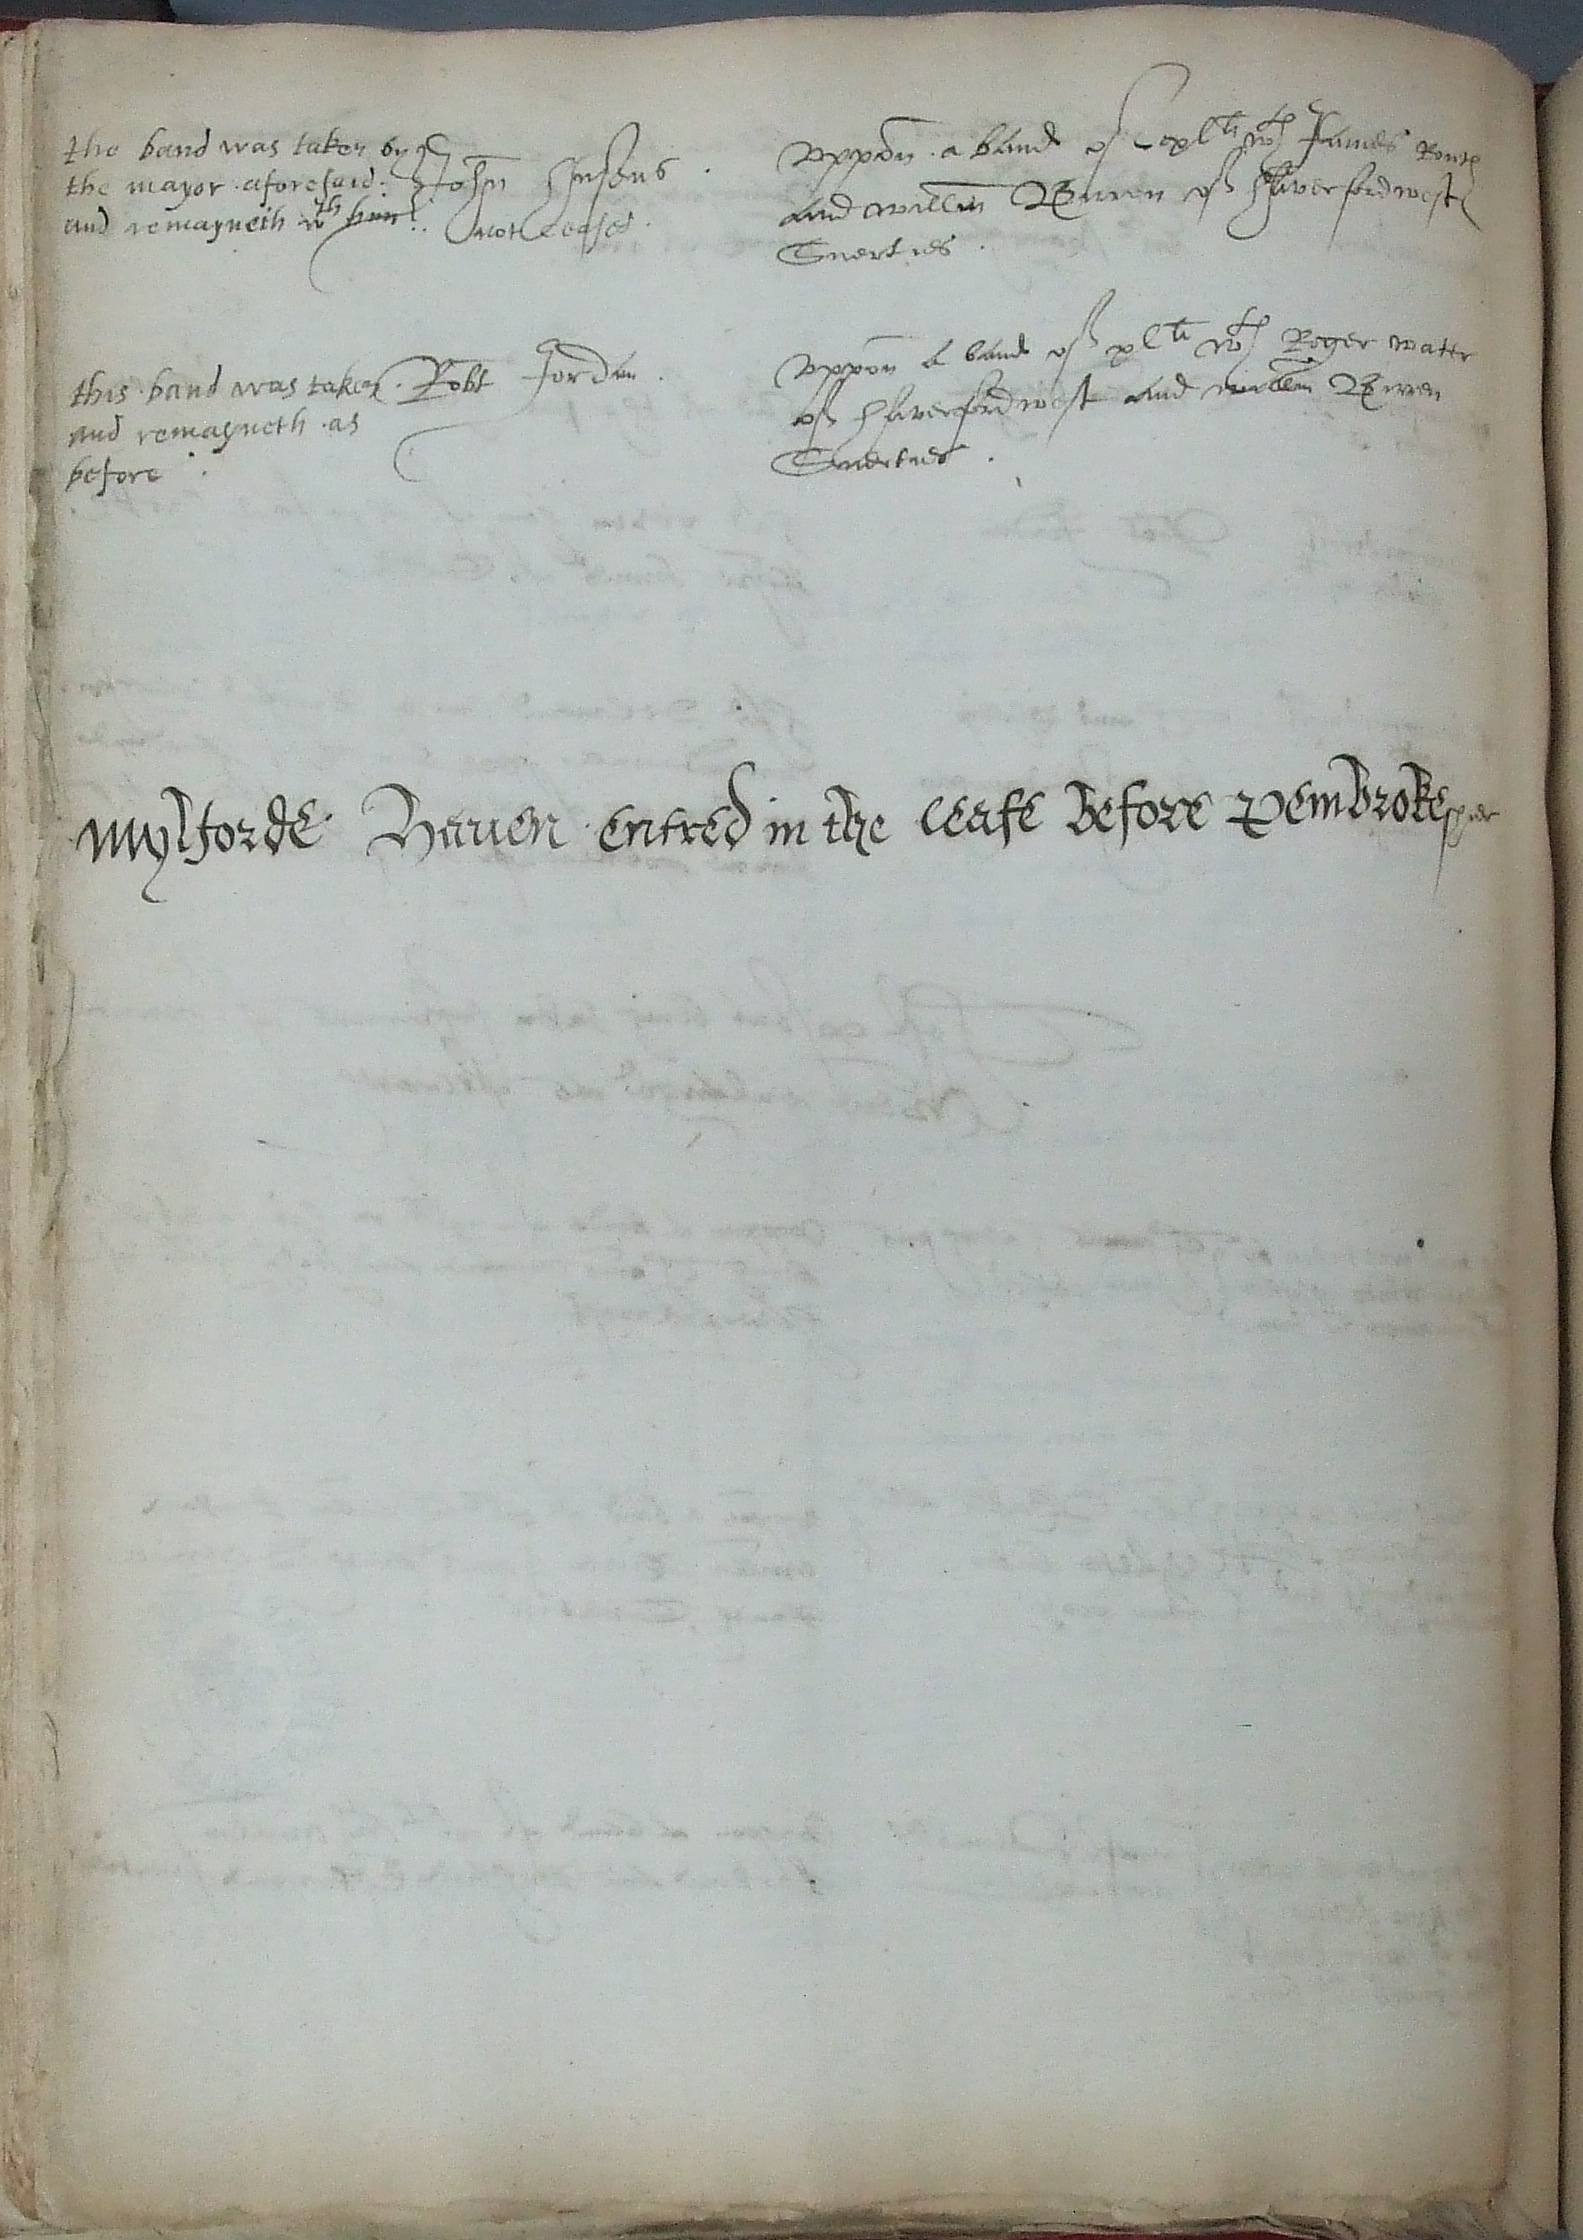 the band was taken by
the mayor aforesaid.
and remayneth wth him.
John
not
Uppon a band of wth James
and Willm Bowen of Haverfordwest
Suerties.
this band was taken
and remayneth as
before.
Robt Jordan.
Uppon a band of xl li wth Roger
of Haverfordwest and Willm Bowen
Suerties.
Mylforde Haven entred in the leafe before Pembrokesher